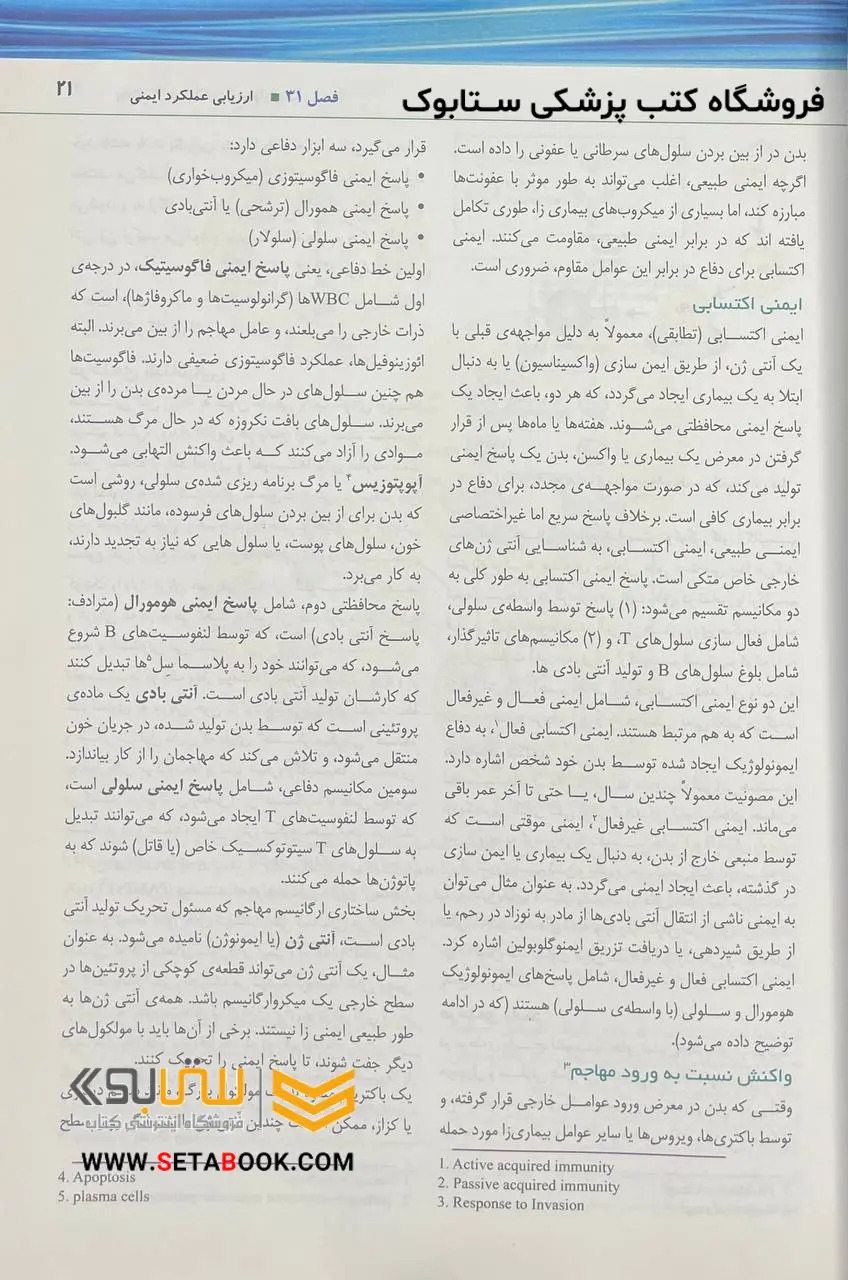 فروشگاه کتب پزشکی ستابوک
فصل ۳۱ ■ ارزیابی عملکرد ایمنی
۲۱
بدن در از بین بردن سلول‌های سرطانی یا عفونی را داده است.
اگرچه ایمنی طبیعی، اغلب می‌تواند به طور موثر با عفونت‌ها
مبارزه کند، اما بسیاری از میکروب‌های بیماری زا، طوری تکامل
یافته اند که در برابر ایمنی طبیعی، مقاومت می‌کنند. ایمنی
اکتسابی برای دفاع در برابر این عوامل مقاوم، ضروری است.
ایمنی اکتسابی
ایمنی اکتسابی (تطابقی)، معمولاً به دلیل مواجهه‌ی قبلی با
یک آنتی ژن، از طریق ایمن سازی (واکسیناسیون) یا به دنبال
ابتلا به یک بیماری ایجاد می‌گردد، که هر دو، باعث ایجاد یک
پاسخ ایمنی محافظتی می‌شوند. هفته‌ها یا ماه‌ها پس از قرار
گرفتن در معرض یک بیماری یا واکسن، بدن یک پاسخ ایمنی
تولید می‌کند، که در صورت مواجهه‌ی مجدد، برای دفاع در
برابر بیماری کافی است. برخلاف پاسخ سریع اما غیراختصاصی
ایمنی طبیعی، ایمنی اکتسابی، به شناسایی آنتی ژن‌های
خارجی خاص متکی است. پاسخ ایمنی اکتسابی به طور کلی به
دو مکانیسم تقسیم می‌شود: (۱) پاسخ توسط واسطه‌ی سلولی،
شامل فعال سازی سلول‌های T، و (۲) مکانیسم‌های تاثیرگذار،
شامل بلوغ سلول‌های B و تولید آنتی بادی ها.
این دو نوع ایمنی اکتسابی، شامل ایمنی فعال و غیرفعال
است که به هم مرتبط هستند. ایمنی اکتسابی فعال۱، به دفاع
ایمونولوژیک ایجاد شده توسط بدن خود شخص اشاره دارد.
این مصونیت معمولاً چندین سال، یا حتی تا آخر عمر باقی
می‌ماند. ایمنی اکتسابی غیرفعال۲، ایمنی موقتی است که
توسط منبعی خارج از بدن، به دنبال یک بیماری یا ایمن سازی
در گذشته، باعث ایجاد ایمنی می‌گردد. به عنوان مثال می‌توان
به ایمنی ناشی از انتقال آنتی بادی‌ها از مادر به نوزاد در رحم، یا
از طریق شیردهی، یا دریافت تزریق ایمنوگلوبولین اشاره کرد.
ایمنی اکتسابی فعال و غیرفعال، شامل پاسخ‌های ایمونولوژیک
هومورال و سلولی (با واسطه‌ی سلولی) هستند (که در ادامه
توضیح داده می‌شود).
واکنش نسبت به ورود مهاجم۳
وقتی که بدن در معرض ورود عوامل خارجی قرار گرفته، و
توسط باکتری‌ها، ویروس‌ها یا سایر عوامل بیماری‌زا مورد حمله
1. Active acquired immunity
2. Passive acquired immunity
3. Response to Invasion
قرار می‌گیرد، سه ابزار دفاعی دارد:
• پاسخ ایمنی فاگوسیتوزی (میکروب‌خواری)
• پاسخ ایمنی همورال (ترشحی) یا آنتی‌بادی
• پاسخ ایمنی سلولی (سلولار)
اولین خط دفاعی، یعنی پاسخ ایمنی فاگوسیتیک، در درجه‌ی
اول شامل WBCها (گرانولوسیت‌ها و ماکروفاژها)، است که
ذرات خارجی را می‌بلعند، و عامل مهاجم را از بین می‌برند. البته
ائوزینوفیل‌ها، عملکرد فاگوسیتوزی ضعیفی دارند. فاگوسیت‌ها
هم چنین سلول‌های در حال مردن یا مرده‌ی بدن را از بین
می‌برند. سلول‌های بافت نکروزه که در حال مرگ هستند،
موادی را آزاد می‌کنند که باعث واکنش التهابی می‌شود.
آپوپتوزیس۴ یا مرگ برنامه ریزی شده‌ی سلولی، روشی است
که بدن برای از بین بردن سلول‌های فرسوده، مانند گلبول‌های
خون، سلول‌های پوست، یا سلول هایی که نیاز به تجدید دارند،
به کار می‌برد.
پاسخ محافظتی دوم، شامل پاسخ ایمنی هومورال (مترادف:
پاسخ آنتی بادی) است، که توسط لنفوسیت‌های B شروع
می‌شود، که می‌توانند خود را به پلاسما سِل۵ها تبدیل کنند
که کارشان تولید آنتی بادی است. آنتی بادی یک ماده‌ی
پروتئینی است که توسط بدن تولید شده، در جریان خون
منتقل می‌شود، و تلاش می‌کند که مهاجمان را از کار بیاندازد.
سومین مکانیسم دفاعی، شامل پاسخ ایمنی سلولی است،
که توسط لنفوسیت‌های T ایجاد می‌شود، که می‌توانند تبدیل
به سلول‌های T سیتوتوکسیک خاص (یا قاتل) شوند که به
پاتوژن‌ها حمله می‌کنند.
بخش ساختاری ارگانیسم مهاجم که مسئول تحریک تولید آنتی
بادی است، آنتی ژن (یا ایمونوژن) نامیده می‌شود. به عنوان
مثال، یک آنتی ژن می‌تواند قطعه‌ی کوچکی از پروتئین‌ها در
سطح خارجی یک میکروارگانیسم باشد. همه‌ی آنتی ژن‌ها به
طور طبیعی ایمنی زا نیستند. برخی از آن‌ها باید با مولکول‌های
دیگر جفت شوند، تا پاسخ ایمنی را تحریک کنند.
یک باکتری
یا کزاز، ممکن است چندین سطح
4. Apoptosis
5. plasma cells
ستابوک
فروشگاه اینترنتی کتاب
WWW.SETABOOK.COM